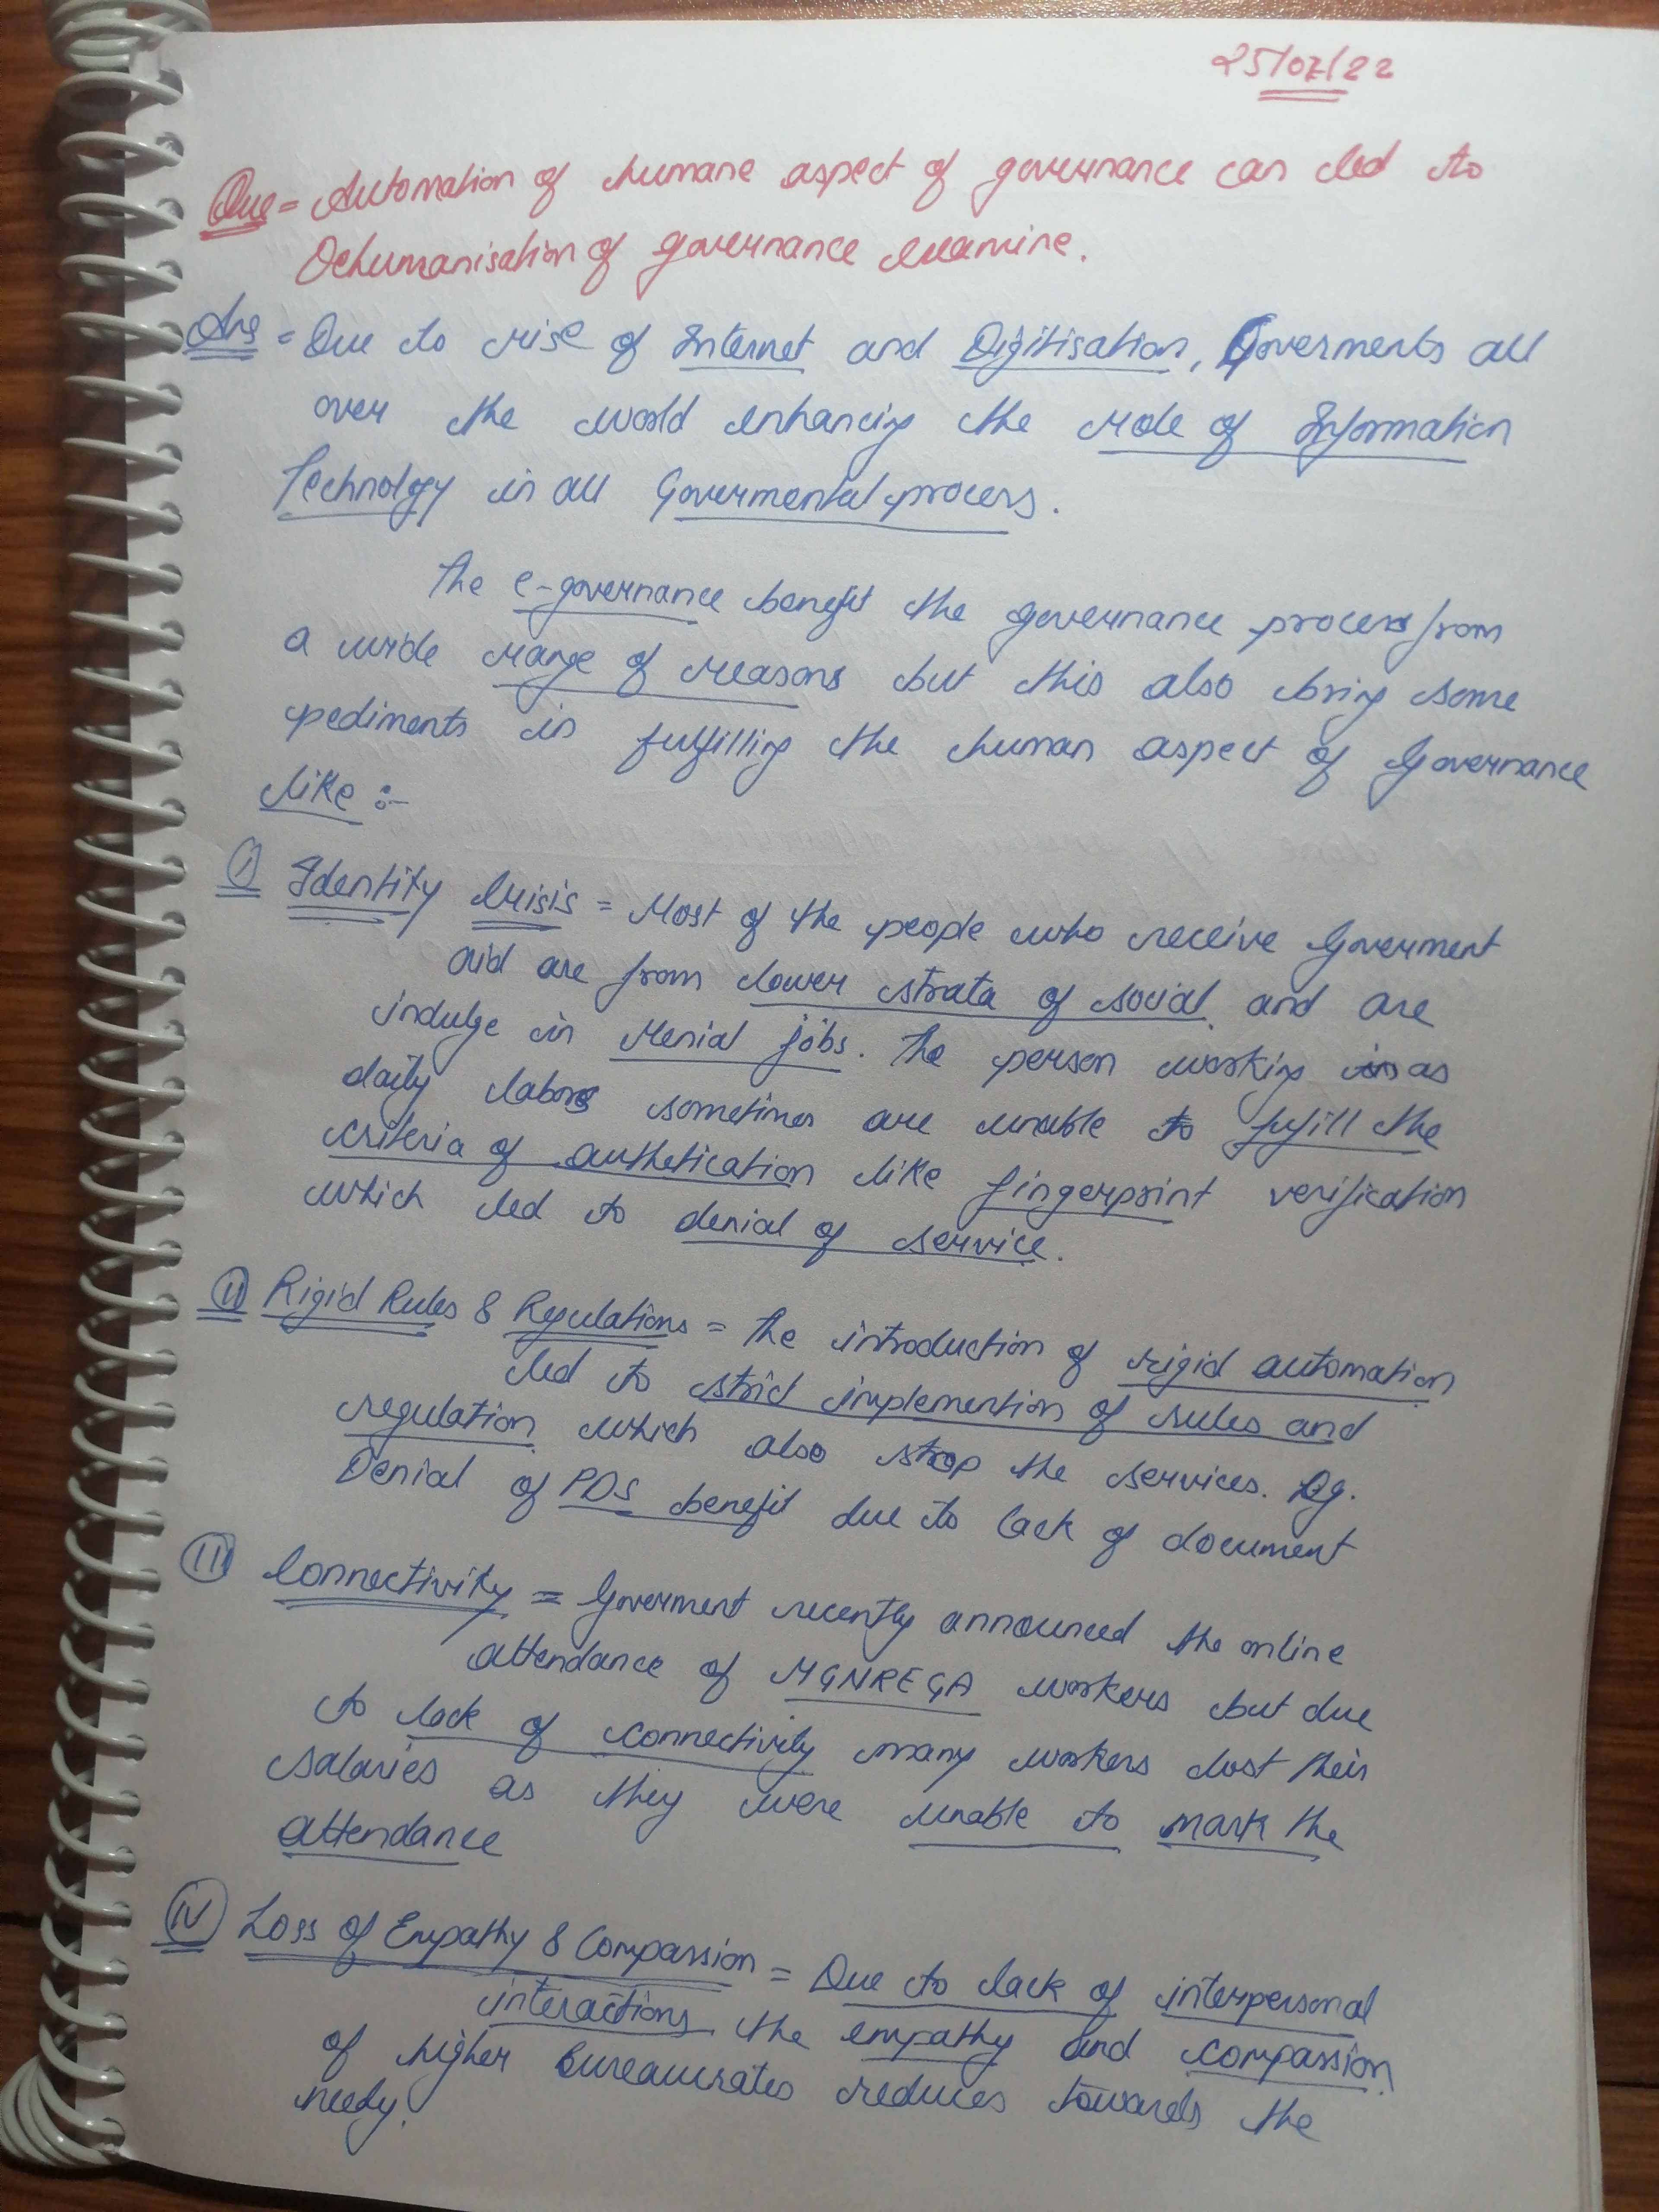 25/07/22
Que = Automation of humane aspect of governance can led to
Dehumanisation of governance examine.
Ans = Due to rise of Internet and Digitisation, Goverments all
over the world enhancing the role of Information
Technology in all Govermental process.
The e-governance benefit the governance process from
a wide range of reasons but this also bring some
pediments in fulfilling the human aspect of Governance
like :-
(I) Identity Crisis = Most of the people who receive Goverment
aid are from lower strata of social and are
indulge in menial jobs. The person working as
daily labors sometimes are unable to fufill the
criteria of authetication like fingerprint verification
which led to denial of service.
(II) Rigid Rules & Regulations = The introduction of rigid automation
led to strict implemention of rules and
regulation which also stop the services. Eg.
Denial of PDS benefit due to lack of document
(III) Connectivity = Goverment recently announced the online
attendance of MGNREGA workers but due
to lack of connectivity many workers lost their
salaries as they were unable to mark the
attendance
(IV) Loss of Empathy & Compassion = Due to lack of interpersonal
interactions the empathy and compassion
of higher bureaucrates reduces towards the
needy.